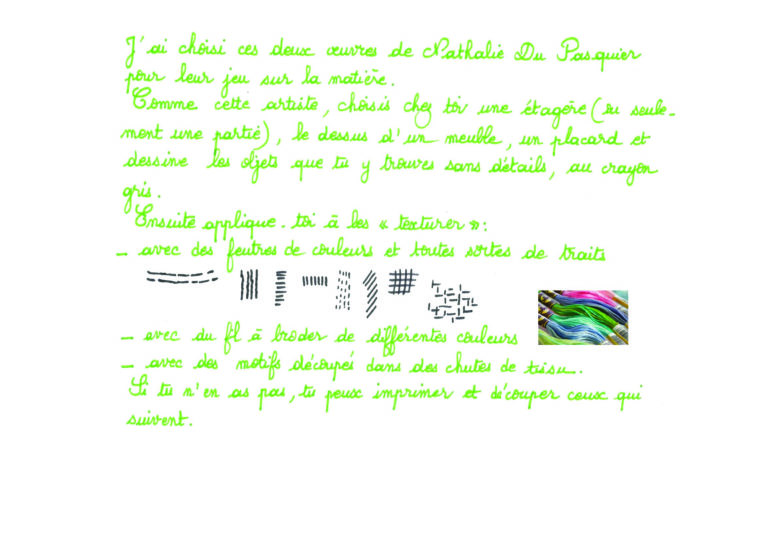 J'ai choisi ces deux œuvres de Nathalie Du Pasquier
pour leur jeu sur la matière.
Comme cette artiste, choisis chez toi une étagère (ou seule-
ment une partie), le dessus d'un meuble, un placard et
dessine les objets que tu y trouves sans détails, au crayon
gris.
Ensuite applique-toi à les « texturer » :
- avec des feutres de couleurs et toutes sortes de traits
- avec du fil à broder de différentes couleurs
- avec des motifs découpés dans des chutes de tissu.
Si tu n'en as pas, tu peux imprimer et découper ceux qui
suivent.